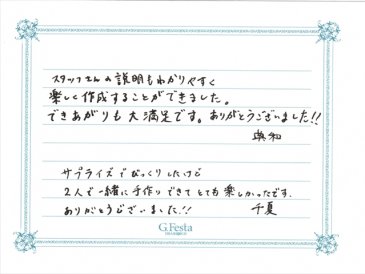 スタッフさんの説明もわかりやすく
楽しく作成することができました。
できあがりも大満足です。ありがとうございました!!
典和
サプライズでびっくりしたけど
2人で一緒に手作りできてとても楽しかったです.
ありがとうございました!!
千夏
G.Festa